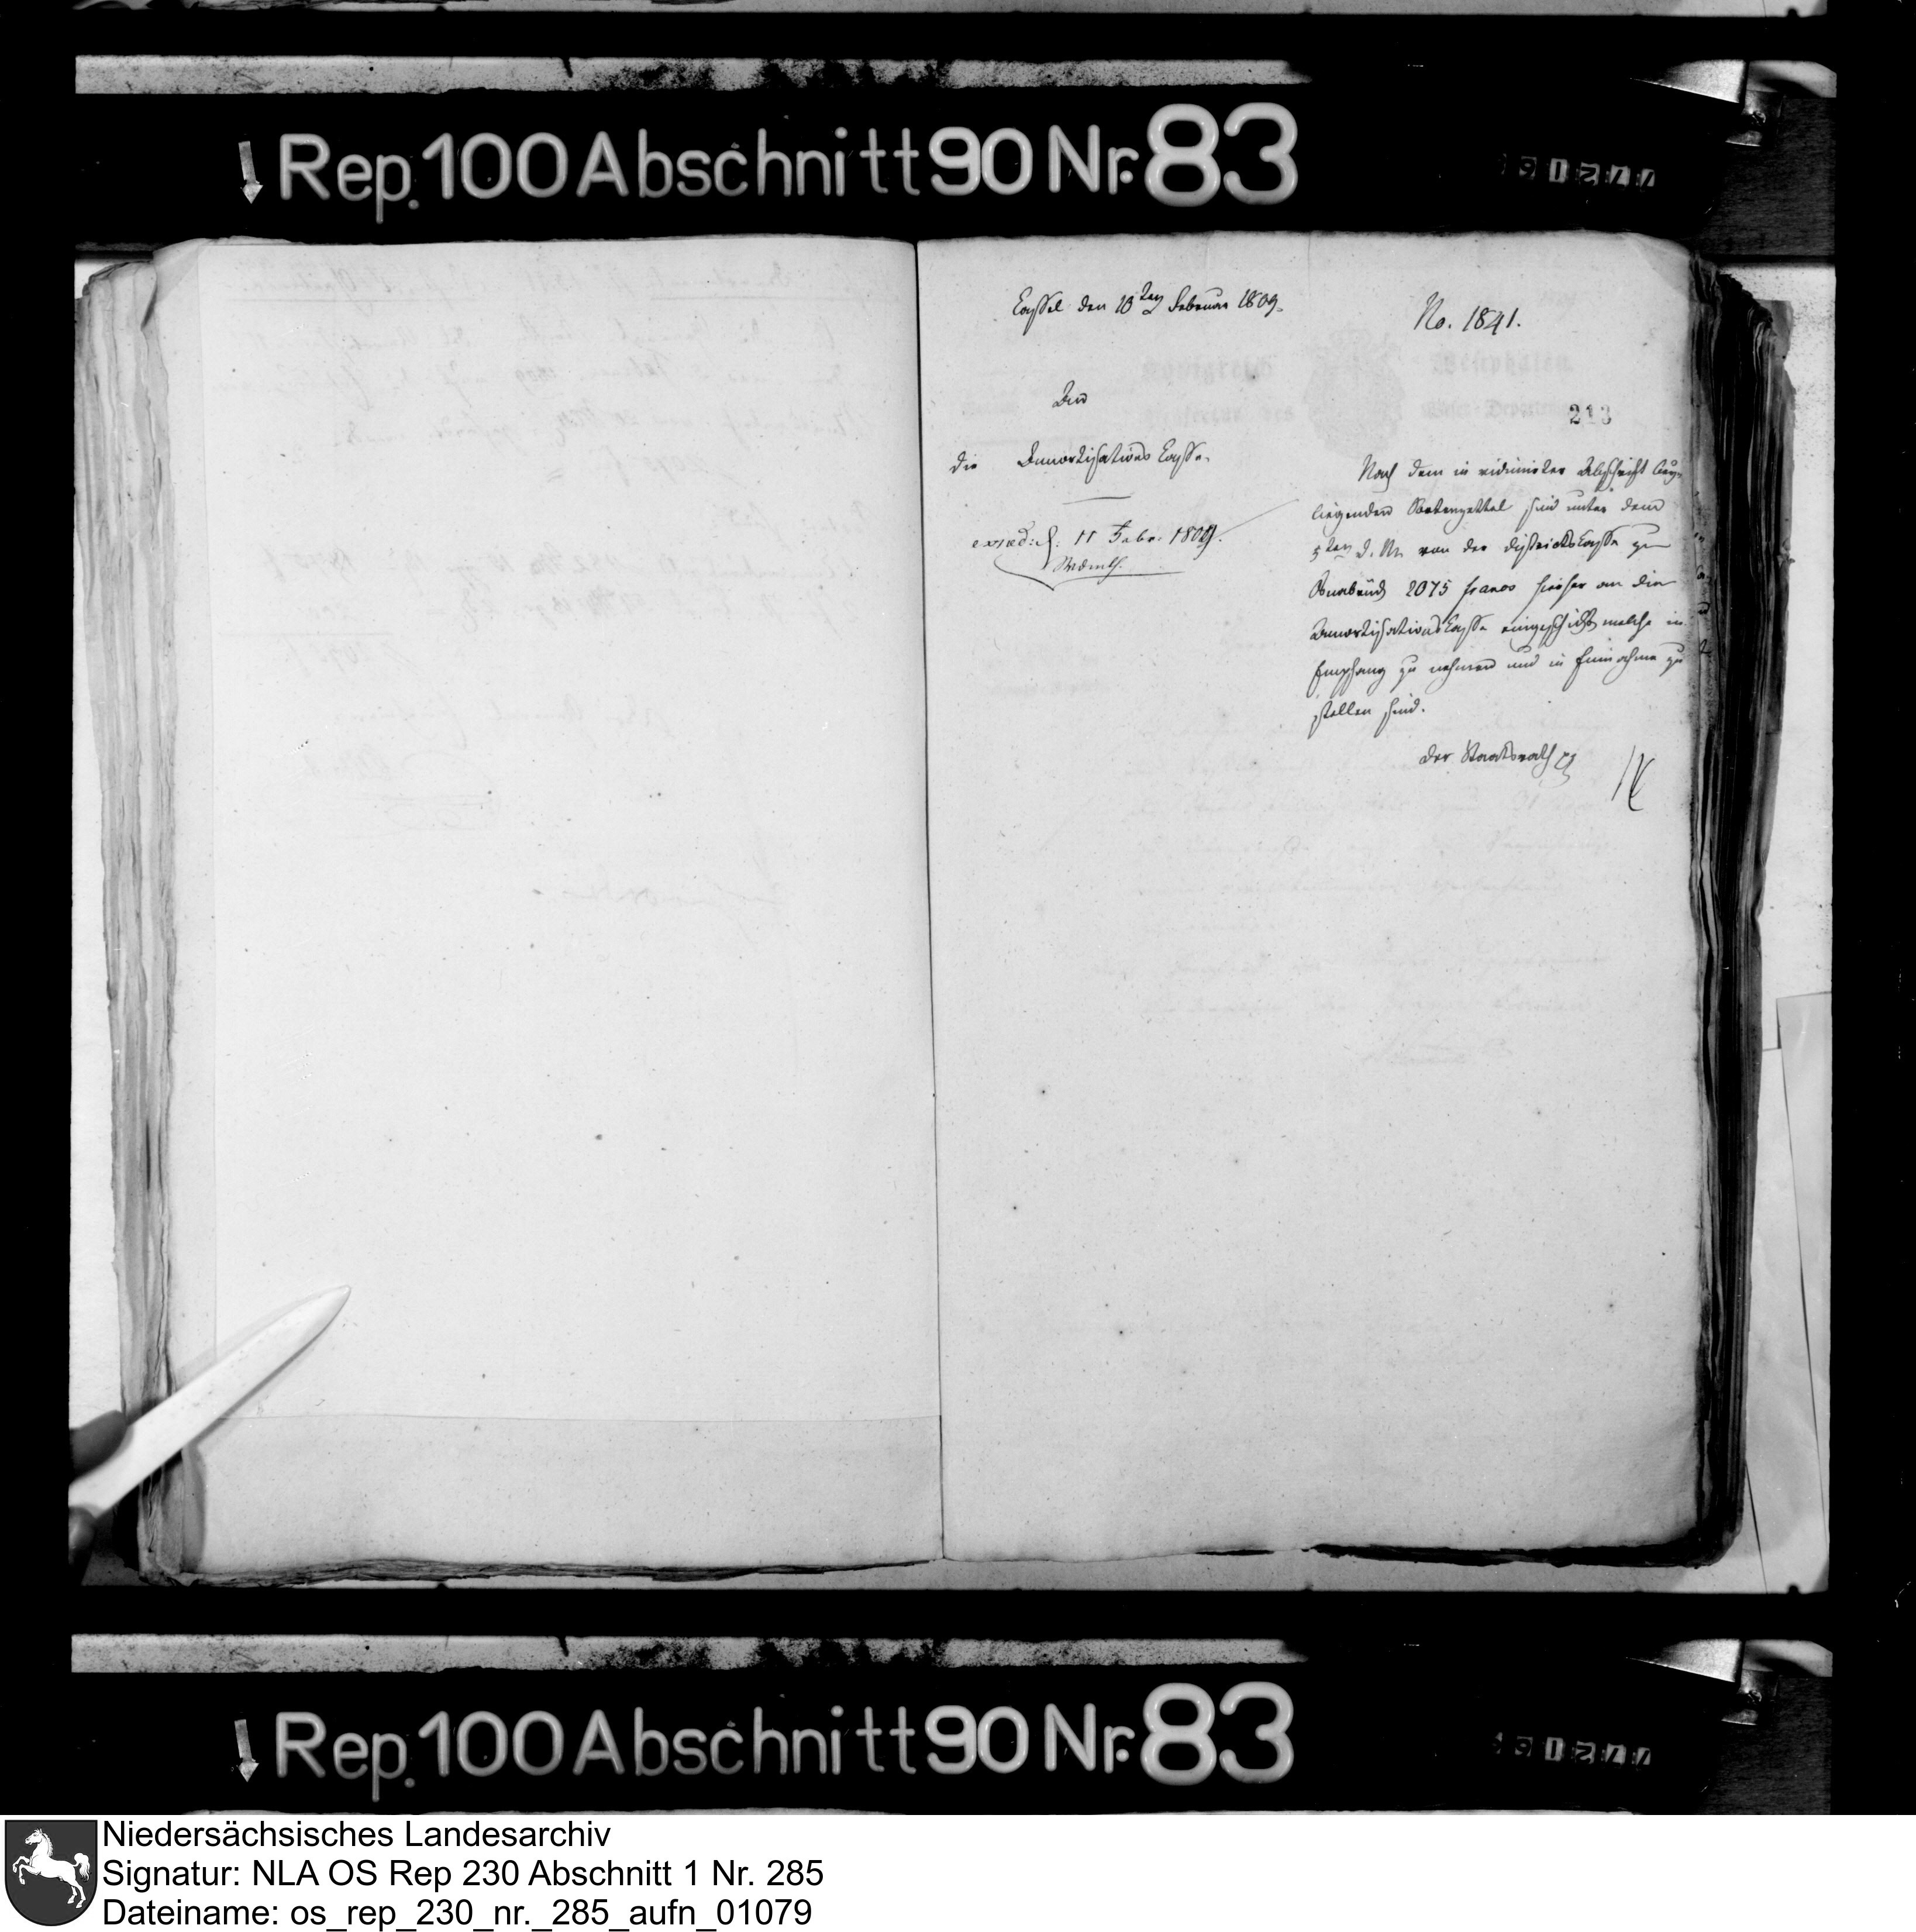 Rep. 100 Abschnitt 90 Nr. 83
Cassel den 10ten Februar 1809.
No. 1841.
An
213
die Amortisations Casse.
exped: d. 11 Febr. 1809.
Nach dem in vidimirter Abschrift bey-
liegenden Botenzettel sind unter dem
5ten d. M. von der Districts Casse zu
Osnabrück 2075 francs hieher an die
Amortisations Casse eingeschickt welche in
Empfang zu nehmen und in Einnahme zu
stellen sind.
Der Staatsrath
Rep. 100 Abschnitt 90 Nr. 83
Niedersächsisches Landesarchiv
Signatur: NLA OS Rep 230 Abschnitt 1 Nr. 285
Dateiname: os_rep_230_nr._285_aufn_01079